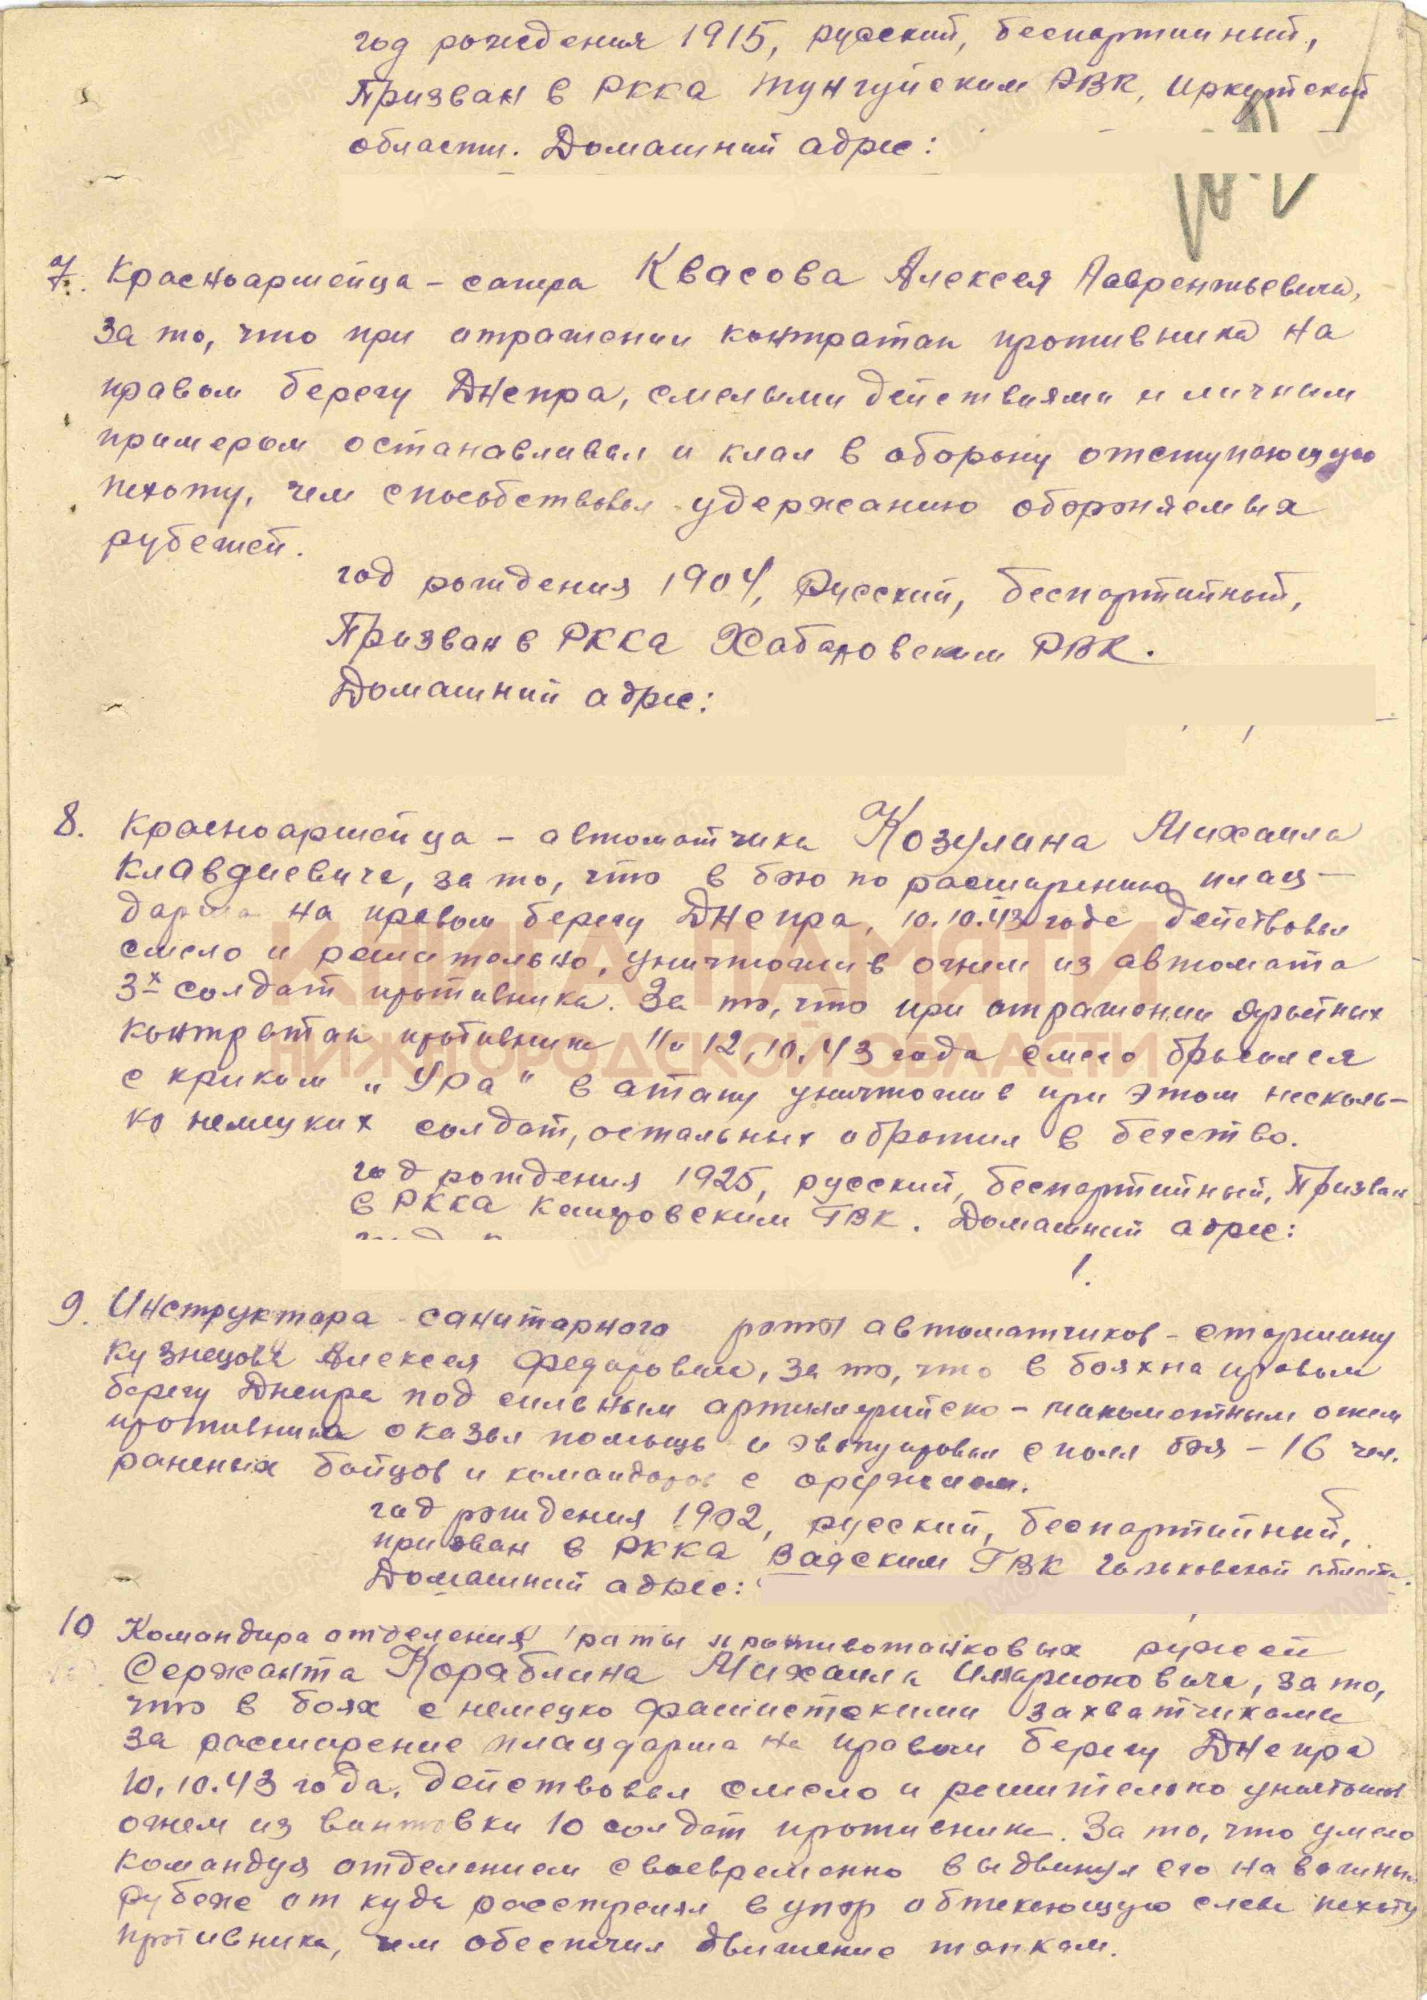 год рождения 1915, русский, беспартийный,
Призван в РККА Тунгуйским РВК, Иркутской
области. Домашний адрес:
7. Красноармейца – сапера Квасова Алексея Лаврентьевича,
за то, что при отражении контратак противника на
правом берегу Днепра, смелыми действиями и личным
примером останавливал и клал в оборону отступающую
пехоту, чем способствовал удержанию обороняемых
рубежей.
год рождения 1904, Русский, беспартийный,
Призван в РККА Хабаровским РВК.
Домашний адрес:
8. Красноармейца – автоматчика Козулина Михаила
Клавдиевича, за то, что в бою по расширению плац–
дарма на правом берегу Днепра, 10.10.43 года действовал
смело и решительно, уничтожив огнем из автомата
3х солдат противника. За то, что при отражении яростных
контратак противника 11 и 12.10.43 года смело бросался
с криком „Ура" в атаку уничтожив при этом несколь–
ко немецких солдат, остальных обратил в бегство.
год рождения 1925, русский, беспартийный, Призван
в РККА Кемеровским ГВК. Домашний адрес:
9. Инструктора санитарного роты автоматчиков – старшину
Кузнецова Алексея Федоровича, за то, что в боях на правом
берегу Днепра под сильным артиллерийско – минометным огнем
противника оказал помощь и эвакуировал с поля боя – 16 чел.
раненых бойцов и командиров с оружием.
год рождения 1902, русский, беспартийный,
призван в РККА Вадским ГВК Горьковской области.
Домашний адрес:
10 Командира отделения роты противотанковых ружей
Сержанта Кораблина Михаила Иларионовича, за то,
что в боях с немецко фашистскими захватчиками
за расширение плацдарма на правом берегу Днепра
10.10.43 года, действовал смело и решительно уничтожил
огнем из винтовки 10 солдат противника. За то, что умело
командуя отделением своевременно выдвинул его на
рубеж от куда расстрелял в упор обтекающую слева пехоту
противника, чем обеспечил движение танкам.
КНИГА ПАМЯТИ
НИЖЕГОРОДСКОЙ ОБЛАСТИ